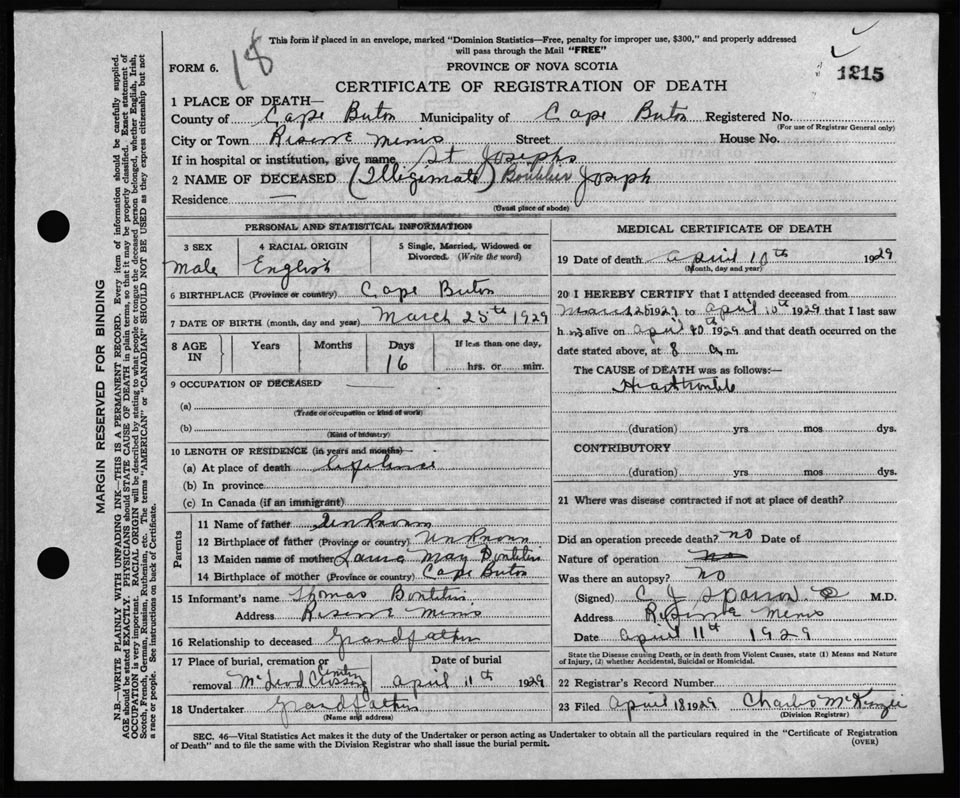 This form if placed in an envelope, marked "Dominion Statistics—Free, penalty for improper use, $300," and properly addressed
will pass through the Mail "FREE"
18
FORM 6.
PROVINCE OF NOVA SCOTIA
1215
CERTIFICATE OF REGISTRATION OF DEATH
1 PLACE OF DEATH—
County of Cape Breton Municipality of Cape Breton Registered No.
(For use of Registrar General only)
City or Town Reserve Mines Street House No.
If in hospital or institution, give name St Josephs
2 NAME OF DECEASED (Illegimate) Boutilier Joseph
Residence —
(Usual place of abode)
PERSONAL AND STATISTICAL INFORMATION
3 SEX
Male
4 RACIAL ORIGIN
English
5 Single, Married, Widowed or
Divorced. (Write the word)
6 BIRTHPLACE (Province or country) Cape Breton
7 DATE OF BIRTH (month, day and year) March 25th 1929
8 AGE
IN
Years
Months
Days
16
If less than one day,
hrs. or min.
9 OCCUPATION OF DECEASED —
(a)
(Trade or occupation or kind of work)
(b)
(Kind of industry)
10 LENGTH OF RESIDENCE (in years and months)—
(a) At place of death
(b) In province
(c) In Canada (if an immigrant)
Parents
11 Name of father Unknown
12 Birthplace of father (Province or country) Unknown
13 Maiden name of mother Laura May Boutilier
14 Birthplace of mother (Province or country) Cape Breton
15 Informant's name Thomas Boutilier
Address Reserve Mines
16 Relationship to deceased Grandfather
17 Place of burial, cremation or
removal McLeod Crossing
Date of burial
April 11th 1929
18 Undertaker Grandfather
(Name and address)
MEDICAL CERTIFICATE OF DEATH
19 Date of death April 10th 1929
(Month, day and year)
20 I HEREBY CERTIFY that I attended deceased from
March 1929 to April 10th 1929 that I last saw
h im alive on April 10th 1929 and that death occurred on the
date stated above, at 8 a.m.
The CAUSE of DEATH was as follows:—
Heart trouble
(duration) yrs mos dys.
CONTRIBUTORY
(duration) yrs. mos. dys.
21 Where was disease contracted if not at place of death?
Did an operation precede death? no Date of
Nature of operation no
Was there an autopsy? no
(Signed) C J Sparrow M.D.
Address Reserve Mines
Date April 11th 1929
State the Disease causing Death, or in death from Violent Causes, state (1) Means and Nature
of Injury, (2) whether Accidental, Suicidal or Homicidal.
22 Registrar's Record Number
23 Filed April 18 1929 Charles McKenzie
(Division Registrar)
SEC. 46—Vital Statistics Act makes it the duty of the Undertaker or person acting as Undertaker to obtain all the particulars required in the "Certificate of Registration
of Death" and to file the same with the Division Registrar who shall issue the burial permit.
(OVER)
MARGIN RESERVED FOR BINDING
N.B.—WRITE PLAINLY WITH UNFADING INK—THIS IS A PERMANENT RECORD. Every item of information should be carefully supplied.
AGE should be stated EXACTLY. PHYSICIANS should STATE CAUSE OF DEATH in plain terms, so that it may be properly classified. Exact statement of
OCCUPATION is very important. RACIAL ORIGIN will be described by stating to what people or tongue the deceased person belonged, whether English, Irish,
Scotch, French, German, Russian, Ruthenian, etc. The terms "AMERICAN" or "CANADIAN" SHOULD NOT BE USED as they express citizenship but not
a race or people. See instructions on back of Certificate.